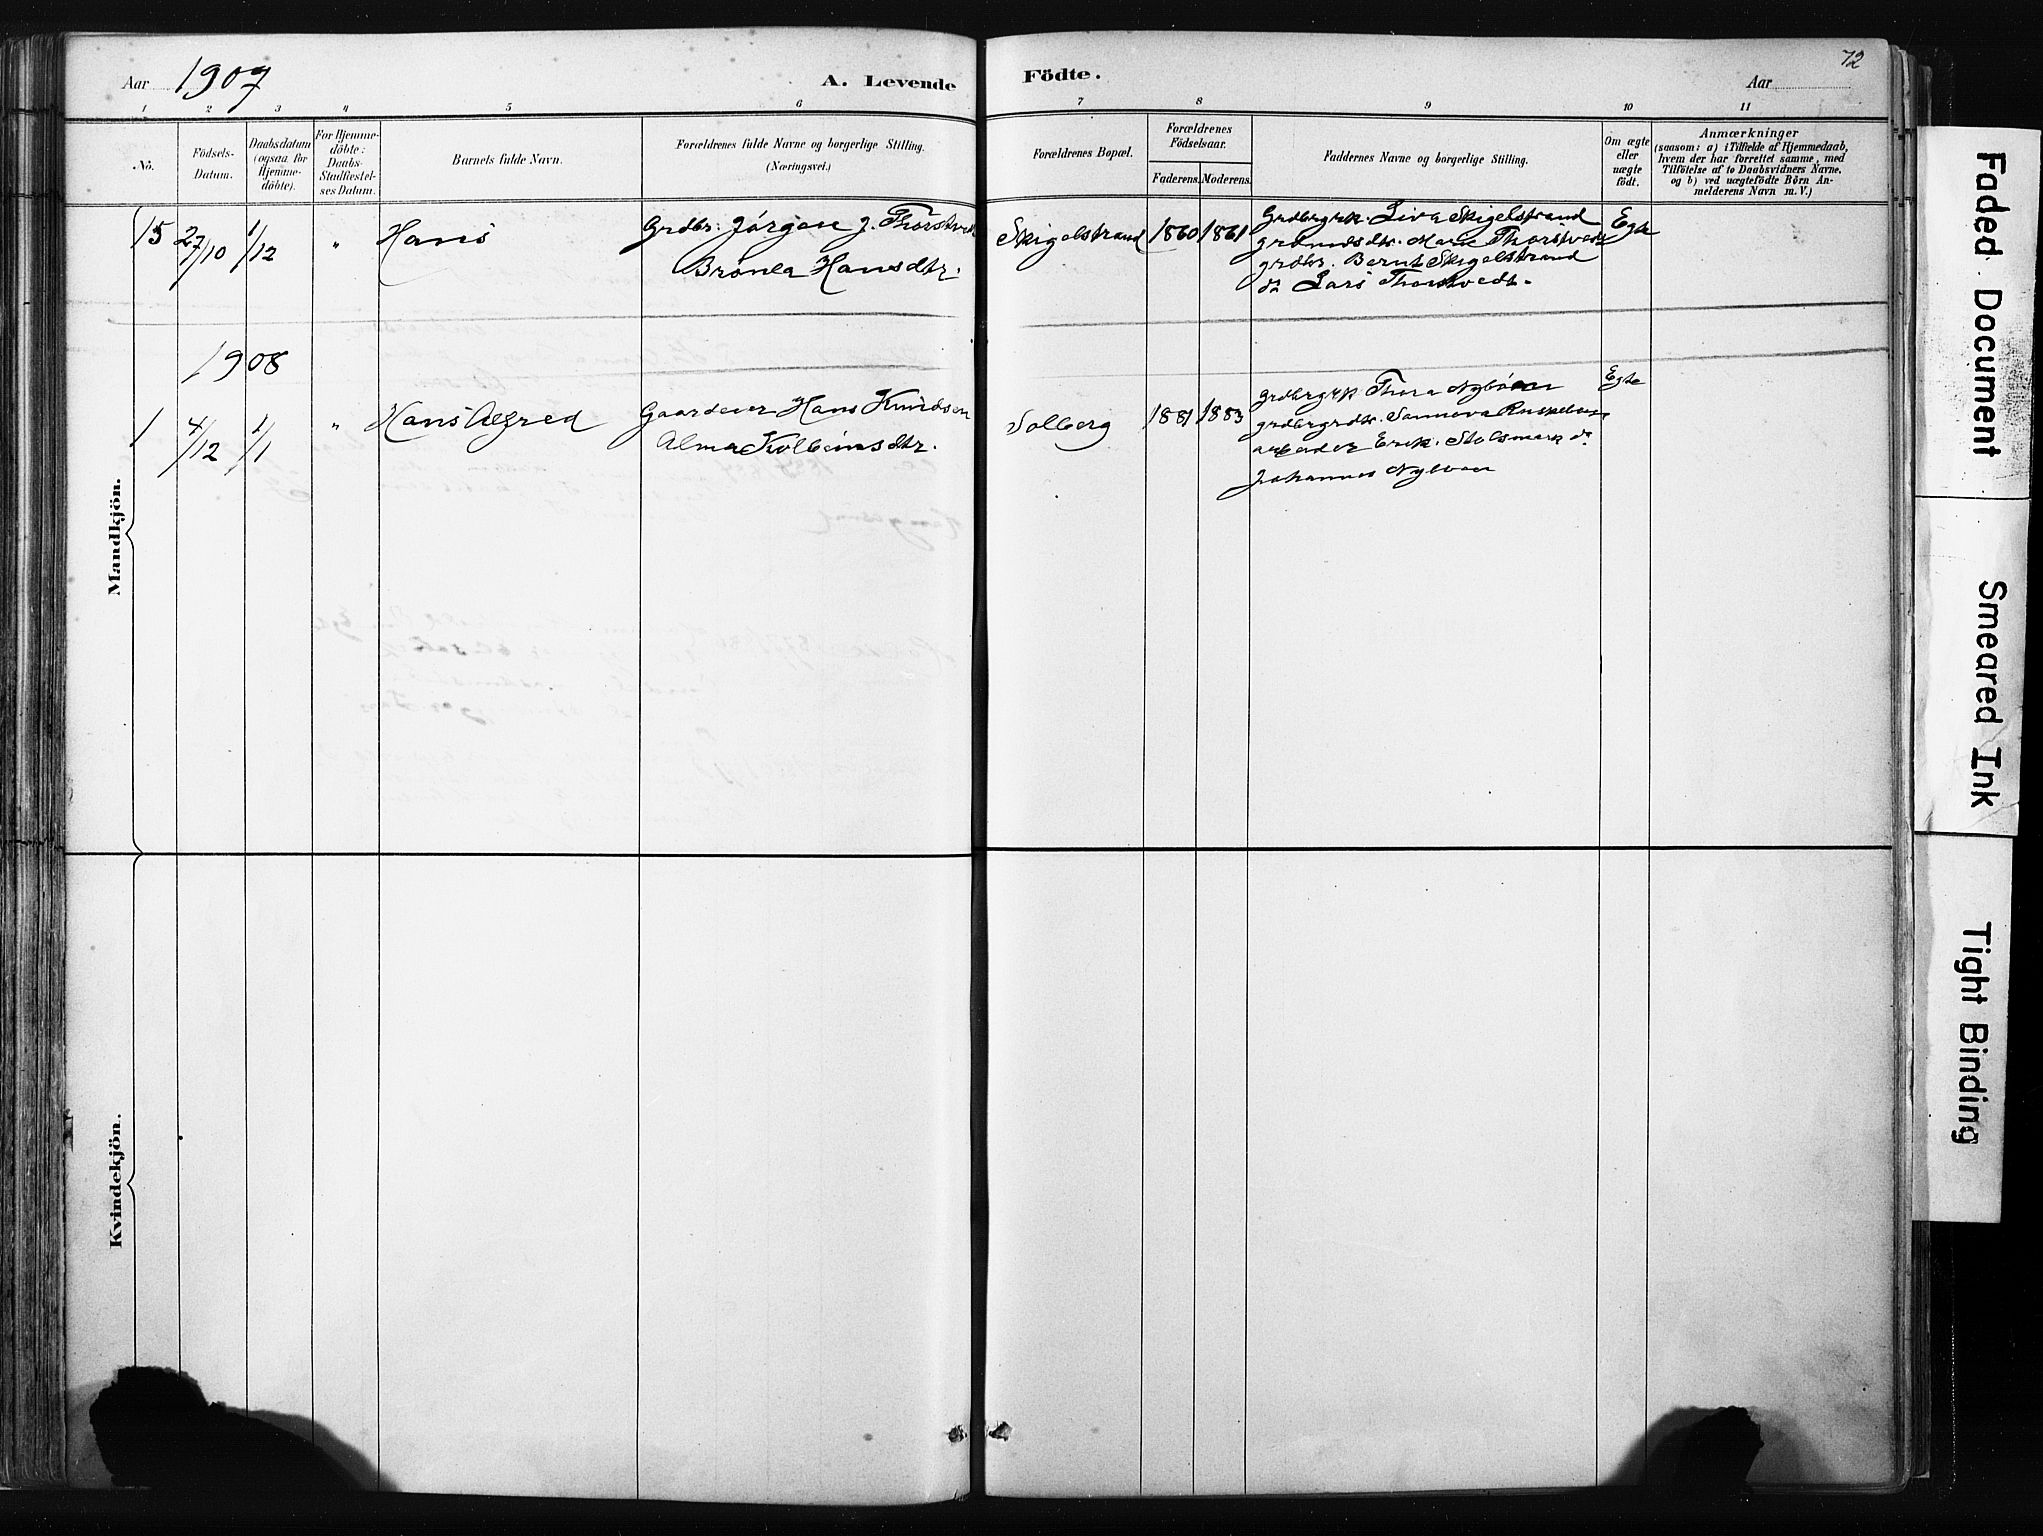 72
Aar 1907
A. Levende Födte.
Aar
1 2 3 4 5 6 7 8 9 10 11
No.
Födsels-
Datum.
Daabsdatum
(ogsaa for
Hjemme-
döbte).
For Hjemme-
döbte:
Daabs-
Stadfæstel-
ses Datum.
Barnets fulde Navn.
Forældrenes fulde Navne og borgerlige Stilling.
(Næringsvei.)
Forældrenes Bopæl.
Forældrenes
Födselsaar.
Faderens. Moderens.
Faddernes Navne og borgerlige Stilling.
Om ægte
eller
uægte
födt.
Anmærkninger
(saasom: a) i Tilfælde af Hjemmedaab,
hvem der har forrettet samme, med
Tilföielse af to Daabsvidners Navne,
og b) ved uægtefödte Börn An-
melderens Navn m. V.)
Mandkjön.
15 27/10 1/12 " Hans
Grdbr. Jørgen J. Thorstvedt
Brønla Hansdtr.
Skigelstrand 1860 1861
Grdbrgrk. Liva Skigelstrand
Marie Thorstvedt
grdbr. Bernt Skigelstrand
do Lars Thorstvedt.
Egte
1908
1 4/12 1/1 " Hans Alfred
Gaardeier Hans Knudsen
Alma Kolbeinsdtr.
Solberg 1881 1883
Thora Nyboen
Sannova
arbeider Erik. do
Johannes Nyboen
Egte
Kvindekjön.
Faded Document
Smeared Ink
Tight Binding